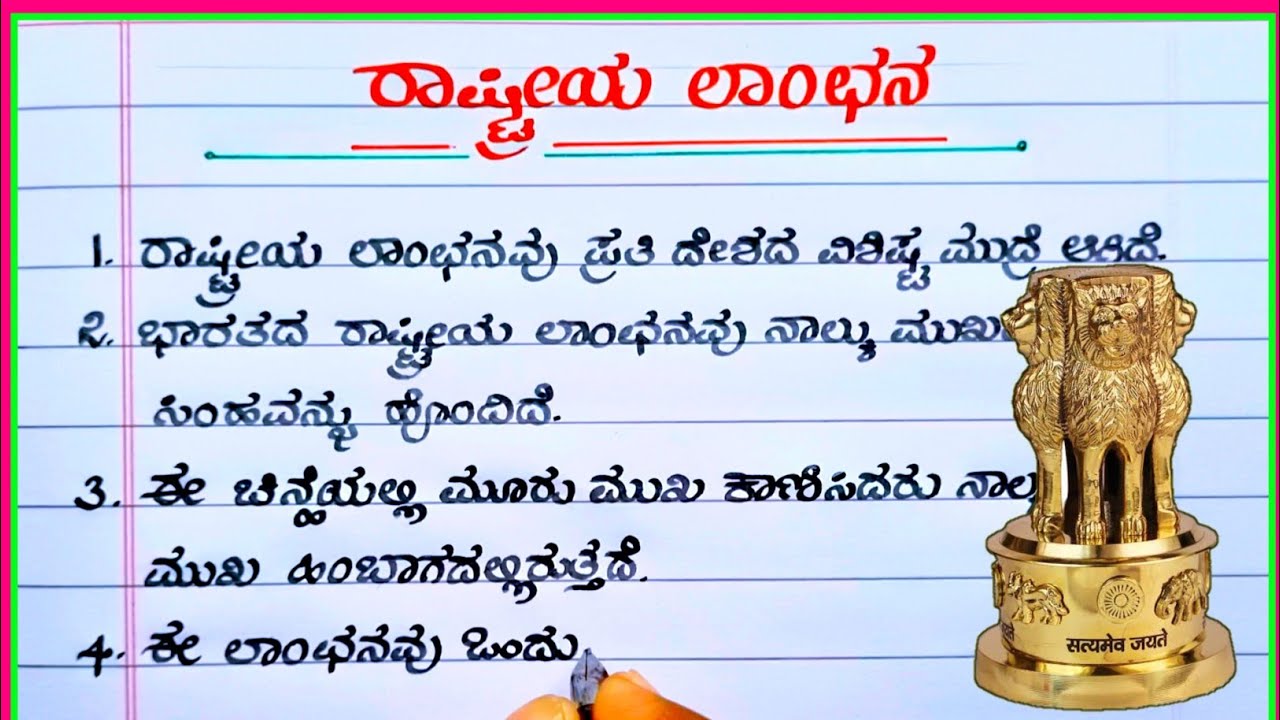 ರಾಷ್ಟ್ರೀಯ ಲಾಂಛನ
1. ರಾಷ್ಟ್ರೀಯ ಲಾಂಛನವು ಪ್ರತಿ ದೇಶದ ವಿಶಿಷ್ಟ ಮುದ್ರೆ ಆಗಿದೆ.
2. ಭಾರತದ ರಾಷ್ಟ್ರೀಯ ಲಾಂಛನವು ನಾಲ್ಕು ಮುಖ
ಸಿಂಹವನ್ನು ಹೊಂದಿದೆ.
3. ಈ ಚಿನ್ಹೆಯಲ್ಲಿ ಮೂರು ಮುಖ ಕಾಣಿಸಿದರು
ಮುಖ ಹಿಂಬಾಗದಲ್ಲಿರುತ್ತದೆ.
4. ಈ ಲಾಂಛನವು ಒಂದು
सत्यमेव जयते